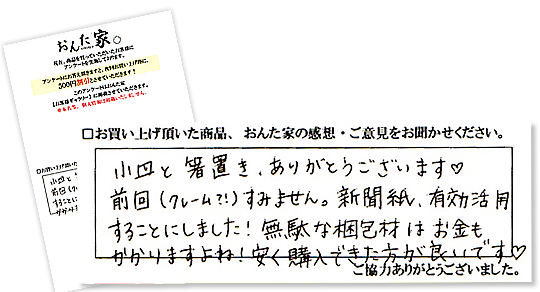 おんた家。
500円割引とさせていただきます!
□お買い上げ頂いた商品、おんた家の感想・ご意見をお聞かせください。
小皿と箸置き、ありがとうございます♡
前回(クレーム?!)すみません。新聞紙、有効活用
することにしました!無駄な梱包材はお金も
かかりますよね!安く購入できた方が良いです♡
ご協力ありがとうございました。